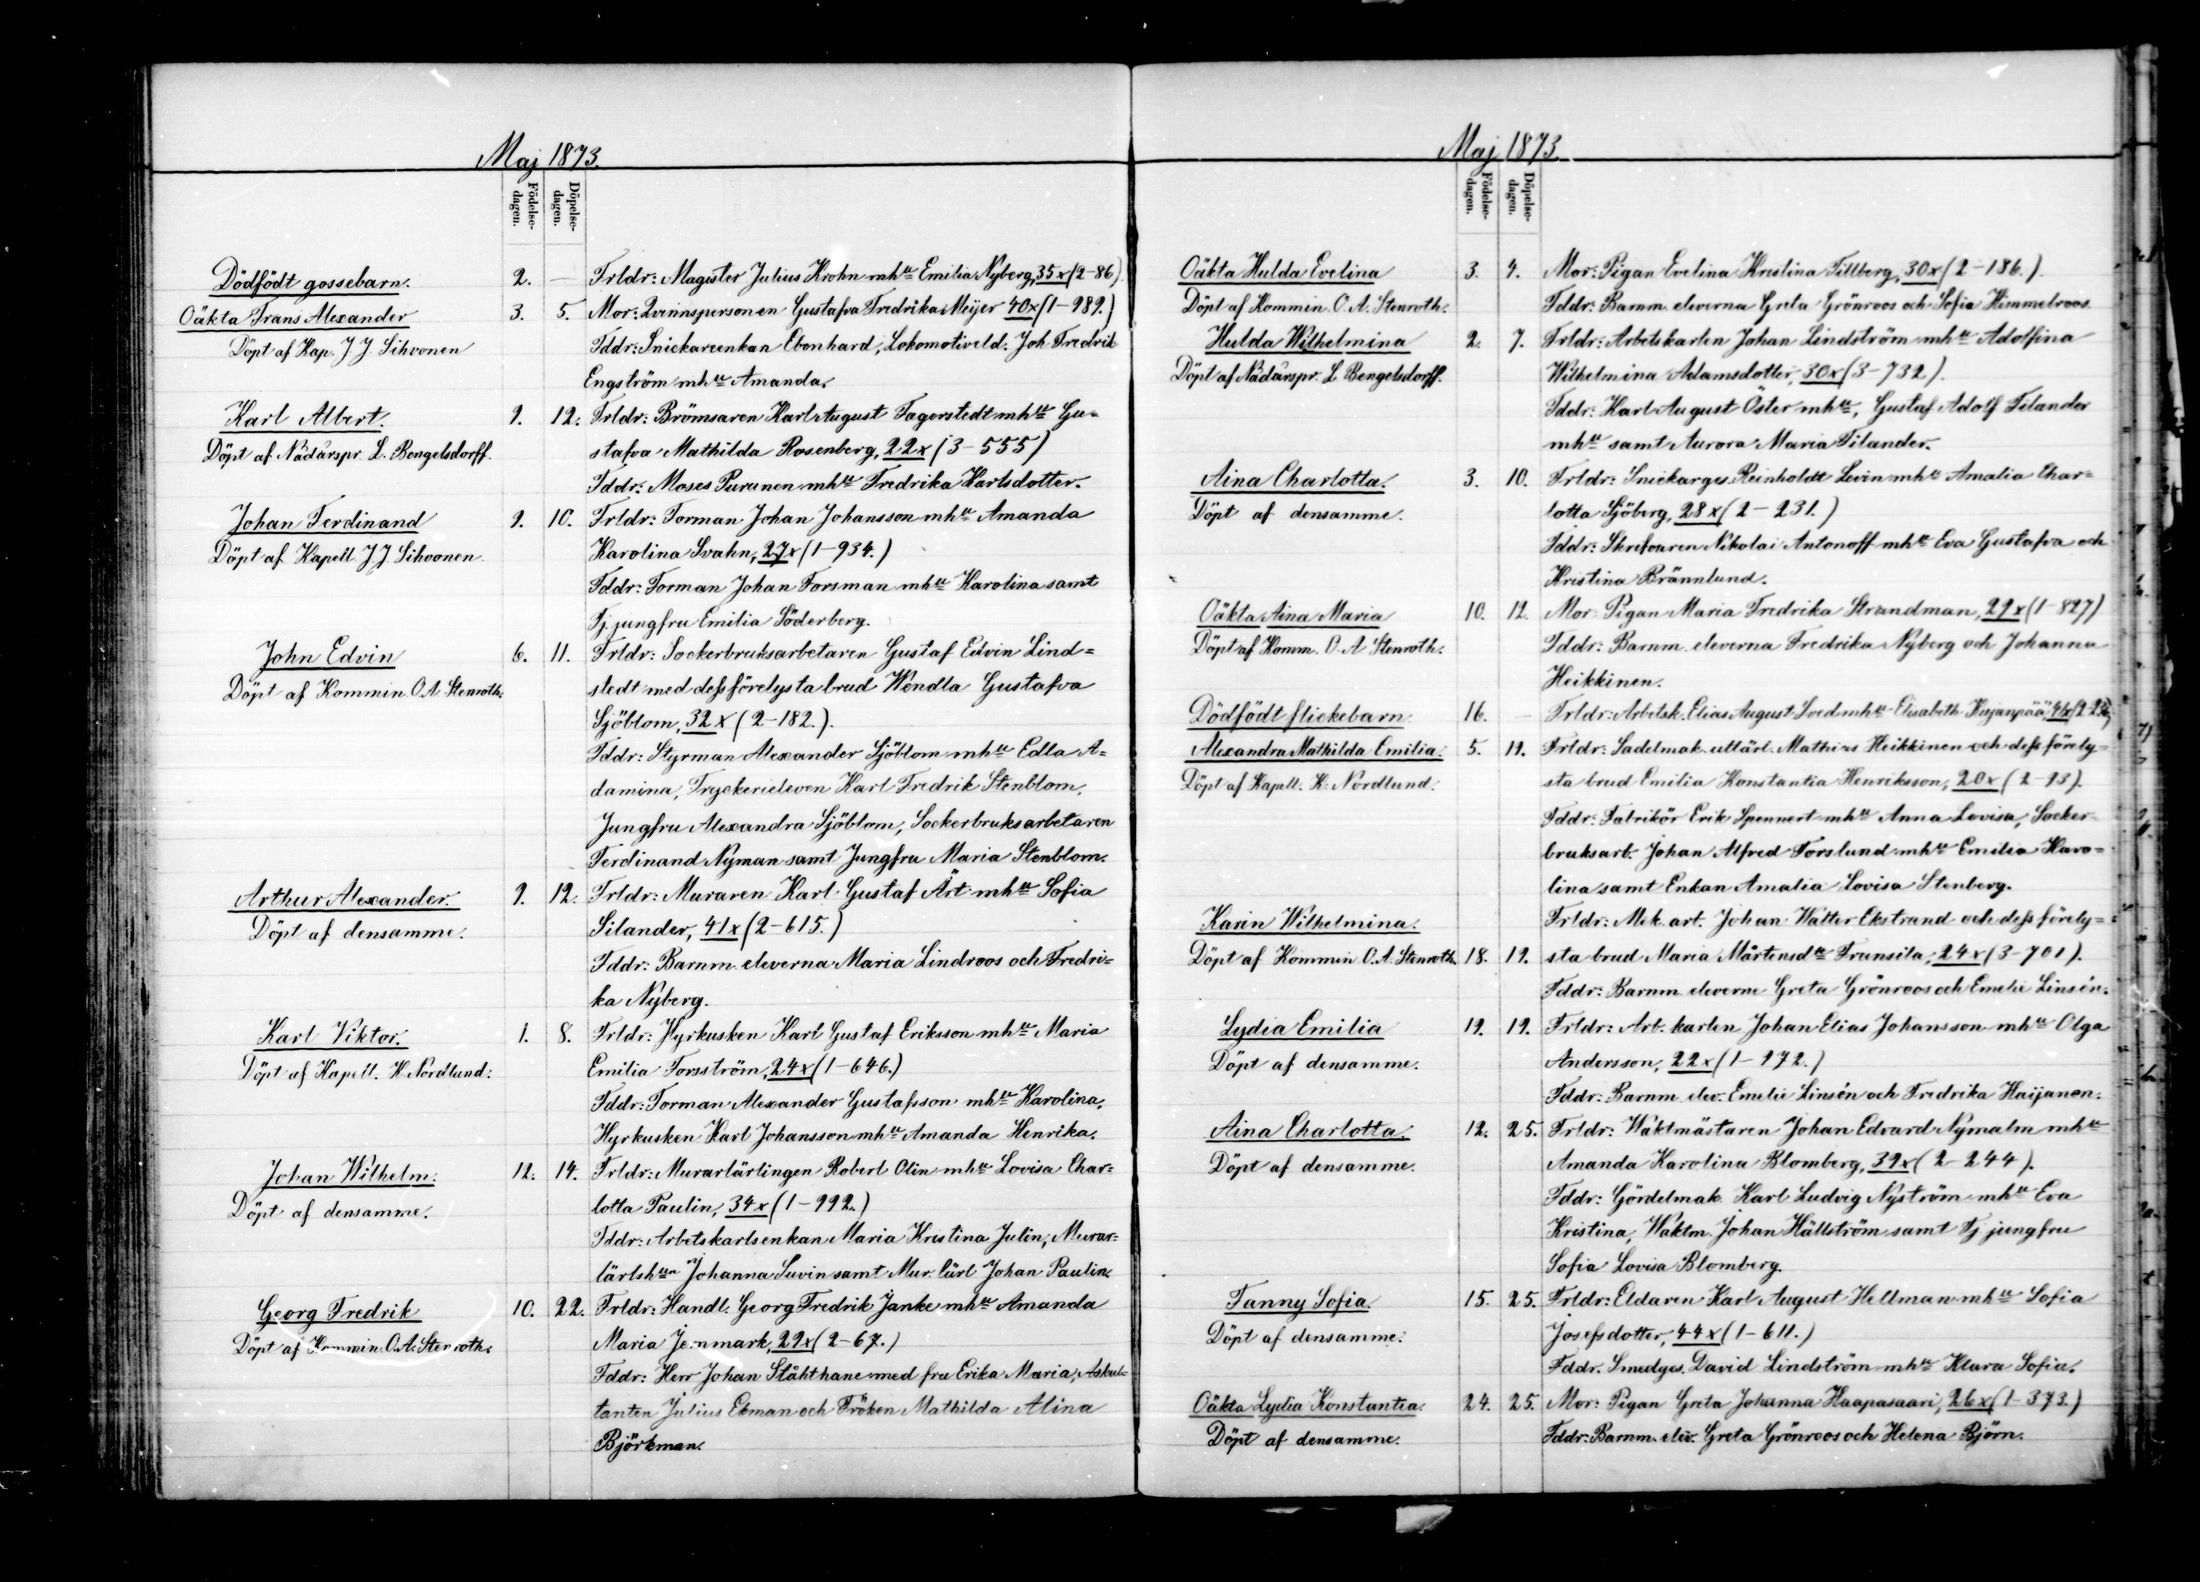 Maj 1873.
Födelse-
dagen.
Döpelse-
dagen.
Dödfödt gossebarn. 2. — Frldr: Magister Julius Krohn mhu Emilia Nyberg, 35x (2-86)
Oäkta Frans Alexander 3. 5. Mor: Qvinnspersonen Gustafva Fredrika Meijer 40x (1-989.)
Döpt af Kap. J. J. Sihvonen Fddr: Snickareenkan Ebenhard, Lokomotiveld. Joh Fredrik
Engström mhu Amanda.
Karl Albert. 9. 12. Frldr: Brömsaren Karl August Fagerstedt mhu Gu=
Döpt af Nådårspr. L. Bengelsdorff. stafva Mathilda Rosenberg, 22x (3-555)
Fddr: Moses Puranen mhu Fredrika Karlsdotter.
Johan Ferdinand 9. 10. Frldr: Forman Johan Johansson mhu Amanda
Döpt af Kapell J. J. Sihvonen. Karolina Svahn, 27x (1-934.)
Fddr: Forman Johan Forsman mhu Karolina samt
Tj. jungfru Emilia Söderberg.
John Edvin 6. 11. Frldr: Sockerbruksarbetaren Gustaf Edvin Lind=
Döpt af Kommin. O. A. Stenroth. stedt med dess förelysta brud Wendla Gustafva
Sjöblom, 32x (2-182.).
Fddr: Styrman Alexander Sjöblom mhu Edla A=
damina, Tryckerieleven Karl Fredrik Stenblom,
Jungfru Alexandra Sjöblom, Sockerbruksarbetaren
Ferdinand Nyman samt Jungfru Maria Stenblom.
Arthur Alexander. 9. 12. Frldr: Muraren Karl Gustaf Ärt mhu Sofia
Döpt af densamme. Silander, 41x (2-615.)
Fddr: Barnm. eleverna Maria Lindroos och Fredri=
ka Nyberg.
Karl Viktor. 1. 8. Frldr: Hyrkusken Karl Gustaf Eriksson mhu Maria
Döpt af Kapell. K. Nordlund. Emilia Forsström, 24x (1-646.)
Fddr: Forman Alexander Gustafsson mhu Karolina,
Hyrkusken Karl Johansson mhu Amanda Henrika.
Johan Wilhelm. 12. 14. Frldr: Murarlärlingen Robert Olin mhu Lovisa Char=
Döpt af densamme. lotta Paulin, 34x (1-992.)
Fddr: Arbetskarlsenkan Maria Kristina Julin, Murar=
lärlshun Johanna Suvin samt Mur. lärl Johan Paulin.
Georg Fredrik 10. 22. Frldr: Handl. Georg Fredrik Janke mhu Amanda
Döpt af Kommin. O. A. Stenroth. Maria Jernmark, 29x (2-67.)
Fddr: Herr Johan Ståhlhane med fru Erika Maria, Askul=
tanten Julius Ekman och Fröken Mathilda Alina
Björkman.
Maj 1873.
Födelse-
dagen.
Döpelse-
dagen.
Oäkta Hulda Evelina 3. 4. Mor: Pigan Evelina Kristina Tillberg, 30x (2-186.).
Döpt af Kommin. O. A. Stenroth. Fddr: Barnm eleverna Greta Grönroos och Sofia Himmelroos.
Hulda Wilhelmina 2. 7. Frldr: Arbetskarlen Johan Lindström mhu Adolfina
Döpt af Nådårspr. L Bengelsdorff. Wilhelmina Adamsdotter, 30x (3-732).
Fddr: Karl August Öster mhu, Gustaf Adolf Tilander
mhu samt Aurora Maria Tilander.
Aina Charlotta. 3. 10. Frldr: Snickarges. Reinholdt Levin mhu Amalia Char=
Döpt af densamme. lotta Sjöberg, 28x (2-231.)
Fddr: Skrifvaren Nikolai Antonoff mhu Eva Gustafva och
Kristina Brännlund.
Oäkta Aina Maria 10. 12. Mor: Pigan Maria Fredrika Strandman, 29x (1-827)
Döpt af Komm. O. A Stenroth. Fddr: Barnm. eleverna Fredrika Nyberg och Johanna
Heikkinen.
Dödfödt flickebarn 16. — Frldr: Arbetsk. Elias August Sved mhu Elisabeth
Alexandra Mathilda Emilia. 5. 19. Frldr: Sadelmak. utlärl. Mathias Heikkinen och dess förely=
Döpt af Kapell. K. Nordlund. sta brud Emilia Konstantia Henriksson, 20x (2-93).
Fddr: Fabrikör Erik Spennert mhu Anna Lovisa, Socker=
bruksarb. Johan Alfred Forslund mhu Emilia Karo=
lina samt Enkan Amalia Lovisa Stenberg.
Karin Wilhelmina. Frldr: Mek. art. Johan Walter Ekstrand och dess förely=
Döpt af Kommin O. A. Stenroth. 18. 19. sta brud Maria Mårtensdtr Transila, 24x (3-701).
Fddr: Barnm eleverne Greta Grönroos och Emelie Linsén.
Lydia Emilia 19. 19. Frldr: Arb. karlen Johan Elias Johansson mhu Olga
Döpt af densamme. Andersson, 22x (1-972.)
Fddr: Barnm. elev. Emelie Linsén och Fredrika Haijanen.
Aina Charlotta. 12. 25. Frldr: Waktmästaren Johan Edvard Nymalm mhu
Döpt af densamme. Amanda Karolina Blomberg, 39x (2-244).
Fddr: Gördelmak. Karl Ludvig Nyström mhu Eva
Kristina, Waktm. Johan Hällström samt Tj jungfru
Sofia Lovisa Blomberg.
Fanny Sofia. 15. 25. Frldr: Eldaren Karl August Hellman mhu Sofia
Döpt af densamme. Josefsdotter, 44x (1-611.)
Fddr. Smedges. David Lindström mhu Klara Sofia.
Oäkta Lydia Konstantia. 24. 25. Mor: Pigan Greta Johanna Haapasaari, 26x (1-373.)
Döpt af densamme. Fddr: Barnm. elev. Greta Grönroos och Helena Björn.